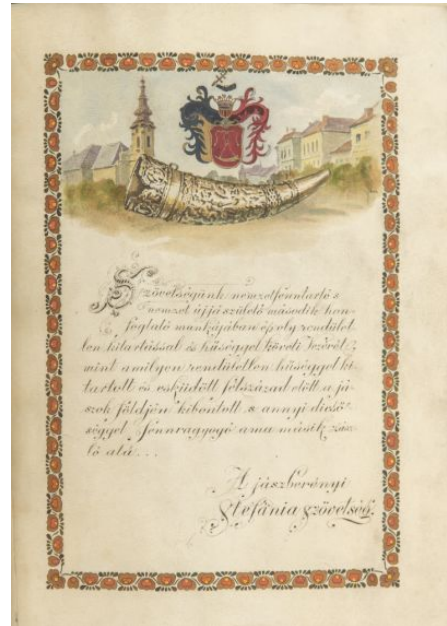 Szövetségünk nemzetfenntartó s
nemzet újjászülető második hon-
foglaló munkájában époly rendület
len kitartással és hűséggel követi Vezérét,
mint amilyen rendületlen hűséggel ki
tartott és esküdött félszázad előtt a já-
szok földjén kibontott s annyi dicső
séggel fennragyogó ama másik zász
ló alá...
A jászberényi
Stefánia Szövetség.